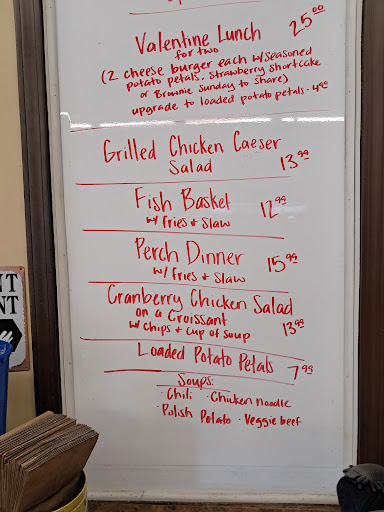 Valentine Lunch 25.00
for two
(2 cheese burger each w/seasoned
potato petals, Strawberry Shortcake
or Brownie Sunday to share)
upgrade to loaded potato petals - 4.99
Grilled Chicken Caeser
Salad 13.99
Fish Basket 12.99
w/ fries + slaw
Perch Dinner 15.99
w/ Fries + Slaw
Cranberry Chicken Salad
on a Croissant
w/ chips + cup of soup 13.99
Loaded Potato Petals 7.99
Soups:
· Chili · Chicken noodle
· Polish Potato · Veggie beef
NT
NT